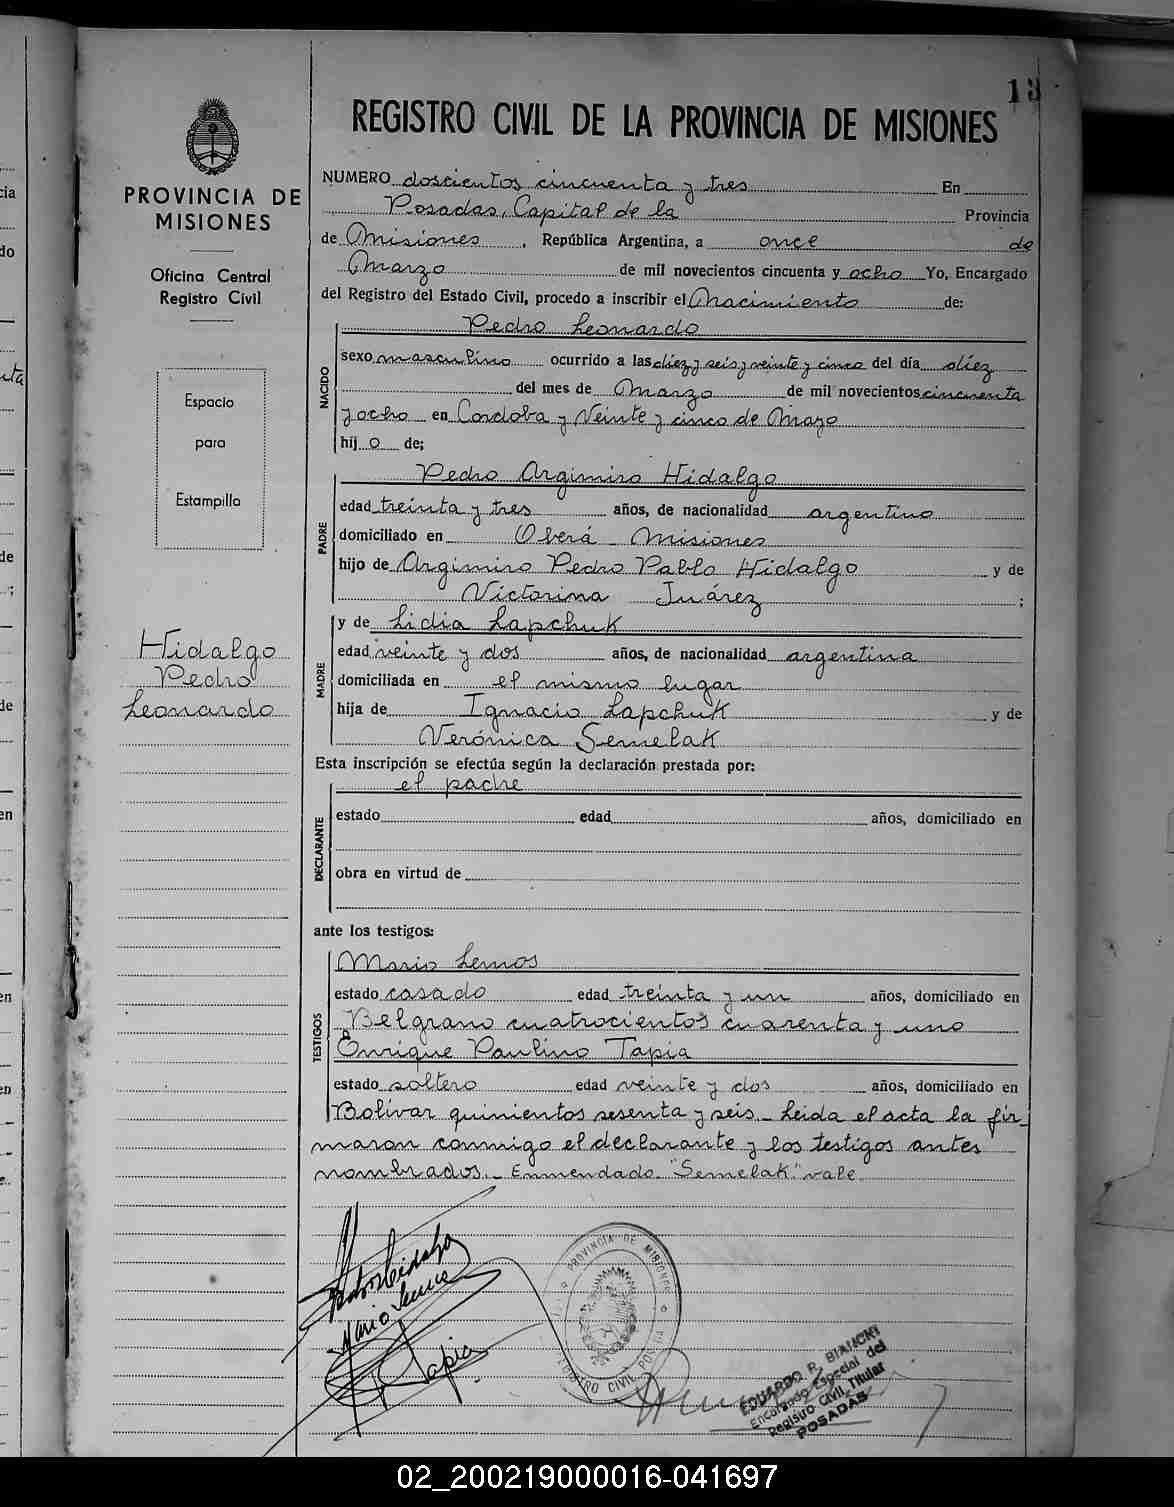 13
REGISTRO CIVIL DE LA PROVINCIA DE MISIONES
PROVINCIA DE
MISIONES
Oficina Central
Registro Civil
Espacio
para
Estampilla
Hidalgo
Pedro
Leonardo
NUMERO doscientos cincuenta y tres En
Posadas, Capital de la Provincia
de Misiones, República Argentina, a once de
Marzo de mil novecientos cincuenta y ocho Yo, Encargado
del Registro del Estado Civil, procedo a inscribir el Nacimiento de:
NACIDO
Pedro Leonardo
sexo masculino ocurrido a las diez y seis y veinte y cinco del día diez
del mes de Marzo de mil novecientos cincuenta
y ocho en Cordoba y Veinte y cinco de Mayo
hij o de;
PADRE
Pedro Argimiro Hidalgo
edad treinta y tres años, de nacionalidad argentino
domiciliado en Oberá - Misiones
hijo de Argimiro Pedro Pablo Hidalgo y de
Victorina Juárez ;
MADRE
y de Lidia Lapchuk
edad veinte y dos años, de nacionalidad argentina
domiciliada en el mismo lugar
hija de Ignacio Lapchuk y de
Verónica Semelak
Esta inscripción se efectúa según la declaración prestada por:
DECLARANTE
el padre
estado edad años, domiciliado en
obra en virtud de
ante los testigos:
TESTIGOS
Mario Lemos
estado casado edad treinta y un años, domiciliado en
Belgrano cuatrocientos cuarenta y uno
Enrique Paulino Tapia
estado soltero edad veinte y dos años, domiciliado en
Bolívar quinientos sesenta y seis.- Leida el acta la fir-
maron conmigo el declarante y los testigos antes
nombrados.- Enmendado "Semelak" vale.
Mario Lemos
Tapia
PROVINCIA DE MISIONES
REGISTRO CIVIL
EDUARDO R. BIANCHI
Encargado Especial del
Registro Civil Titular
POSADAS
02_200219000016-041697